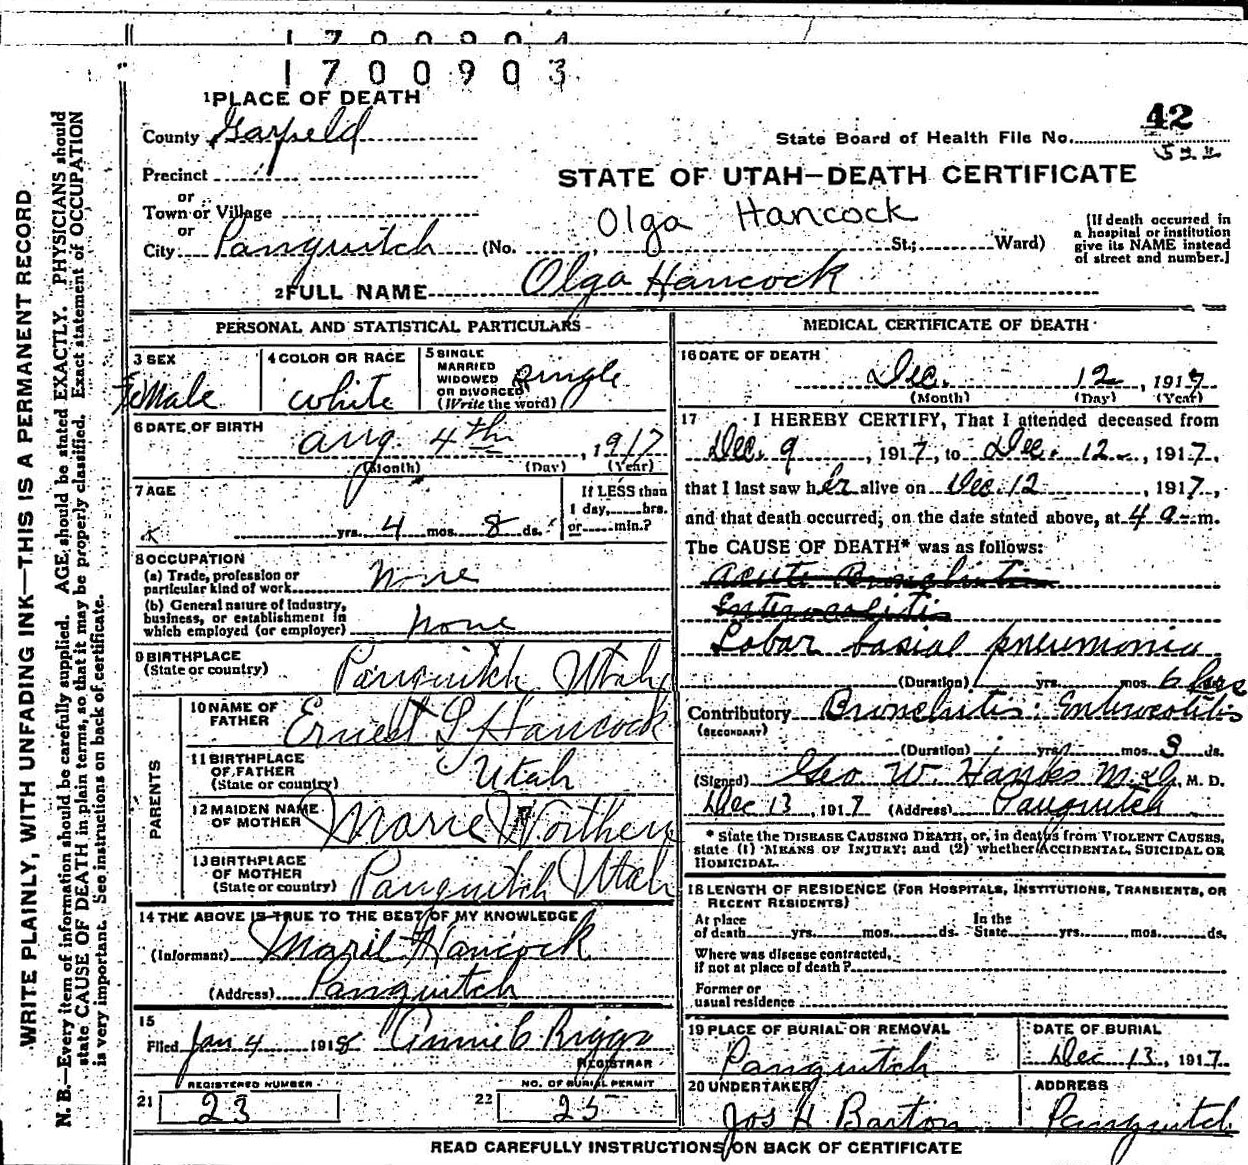 1700904
1700903
WRITE PLAINLY, WITH UNFADING INK—THIS IS A PERMANENT RECORD
N. B.—Every item of information should be carefully supplied. AGE should be stated EXACTLY. PHYSICIANS should
state CAUSE OF DEATH in plain terms, so that it may be properly classified. Exact statement of OCCUPATION
is very important. See instructions on back of certificate.
1 PLACE OF DEATH
County Garfield
Precinct
or
Town or Village
or
City Panguitch (No. St.; Ward)
State Board of Health File No. 42
522
STATE OF UTAH—DEATH CERTIFICATE
Olga Hancock
[If death occurred in
a hospital or institution
give its NAME instead
of street and number.]
2 FULL NAME Olga Hancock
PERSONAL AND STATISTICAL PARTICULARS
3 SEX
Female
4 COLOR OR RACE
white
5 SINGLE
MARRIED
WIDOWED
OR DIVORCED
(Write the word)
single
6 DATE OF BIRTH
Aug. 4th, 1917
(Month) (Day) (Year)
7 AGE
yrs. 4 mos. 8 ds.
If LESS than
1 day, hrs.
or min.?
8 OCCUPATION
(a) Trade, profession or
particular kind of work none
(b) General nature of industry,
business, or establishment in
which employed (or employer) none
9 BIRTHPLACE
(State or country) Panguitch Utah
PARENTS
10 NAME OF
FATHER Ernest L Hancock
11 BIRTHPLACE
OF FATHER
(State or country) Utah
12 MAIDEN NAME
OF MOTHER Marie Worthen
13 BIRTHPLACE
OF MOTHER
(State or country) Panguitch Utah
14 THE ABOVE IS TRUE TO THE BEST OF MY KNOWLEDGE
(Informant) Marie Hancock
(Address) Panguitch
15
Filed Jan 4 1918 Annie C Riggs
REGISTRAR
REGISTERED NUMBER
21 23
NO. OF BURIAL PERMIT
22 25
MEDICAL CERTIFICATE OF DEATH
16 DATE OF DEATH
Dec. 12, 1917
(Month) (Day) (Year)
17 I HEREBY CERTIFY, That I attended deceased from
Dec. 9, 1917, to Dec. 12, 1917,
that I last saw her alive on Dec. 12, 1917,
and that death occurred, on the date stated above, at 4 a m.
The CAUSE OF DEATH* was as follows:
Acute Bronchitis
Enterocolitis
Lobar basial pneumonia
(Duration) yrs. mos. 6
Contributory Bronchitis Enterocolitis
(SECONDARY)
(Duration) yrs. mos. 9 ds.
(Signed) Geo W. Hanks M.D., M. D.
Dec 13, 1917 (Address) Panguitch
* State the DISEASE CAUSING DEATH, or, in deaths from VIOLENT CAUSES,
state (1) MEANS OF INJURY; and (2) whether ACCIDENTAL, SUICIDAL OR
HOMICIDAL.
18 LENGTH OF RESIDENCE (FOR HOSPITALS, INSTITUTIONS, TRANSIENTS, OR
RECENT RESIDENTS)
At place
of death yrs. mos. ds. In the
State yrs. mos. ds.
Where was disease contracted,
if not at place of death?
Former or
usual residence
19 PLACE OF BURIAL OR REMOVAL
Panguitch
DATE OF BURIAL
Dec 13, 1917.
20 UNDERTAKER
Jos H. Barton
ADDRESS
Panguitch
READ CAREFULLY INSTRUCTIONS ON BACK OF CERTIFICATE